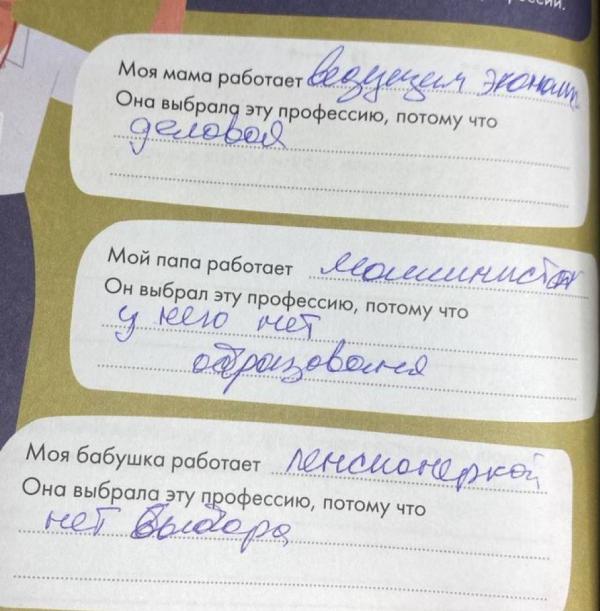 Моя мама работает ведущим эконом.
Она выбрала эту профессию, потому что
деловая
Мой папа работает машинистом
Он выбрал эту профессию, потому что
у него нет
образования
Моя бабушка работает пенсионеркой
Она выбрала эту профессию, потому что
нет выбора